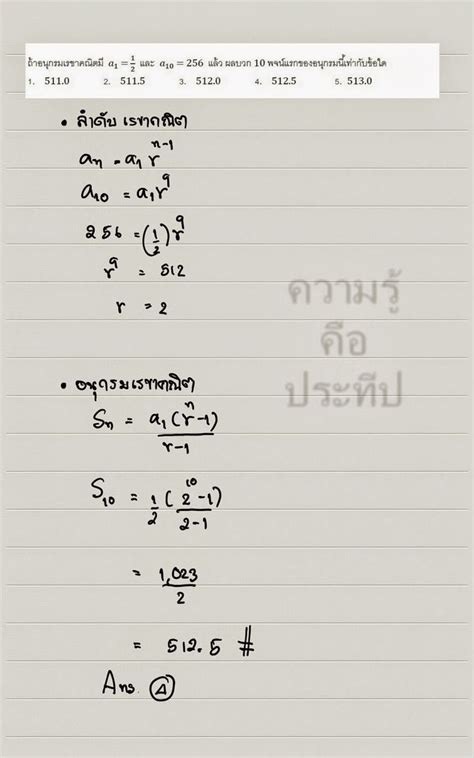 ถ้าอนุกรมเรขาคณิตมี a₁ = 1/2 และ a₁₀ = 256 แล้ว ผลบวก 10 พจน์แรกของอนุกรมนี้เท่ากับข้อใด
1. 511.0 2. 511.5 3. 512.0 4. 512.5 5. 513.0
• ลำดับ เรขาคณิต
aₙ = a₁ rⁿ⁻¹
a₁₀ = a₁r⁹
256 = (1/2) r⁹
r⁹ = 512
r = 2
ความรู้
คือ
ประทีป
• อนุกรมเรขาคณิต
Sₙ = a₁(rⁿ-1) / r-1
S₁₀ = 1/2 (2¹⁰-1) / 2-1
= 1,023 / 2
= 512.5 #
Ans. ④